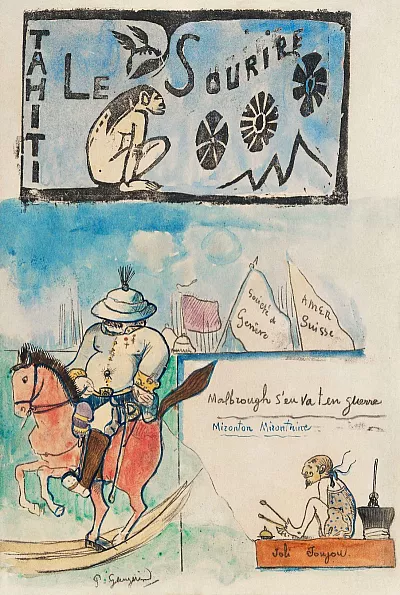 TAHITI
LE SOURIRE
Société de
Genève
AMER
Suisse
Malbrough s'en va t'en guerre
Mironton Mirontaine
Joli Joujou.
P. Gauguin